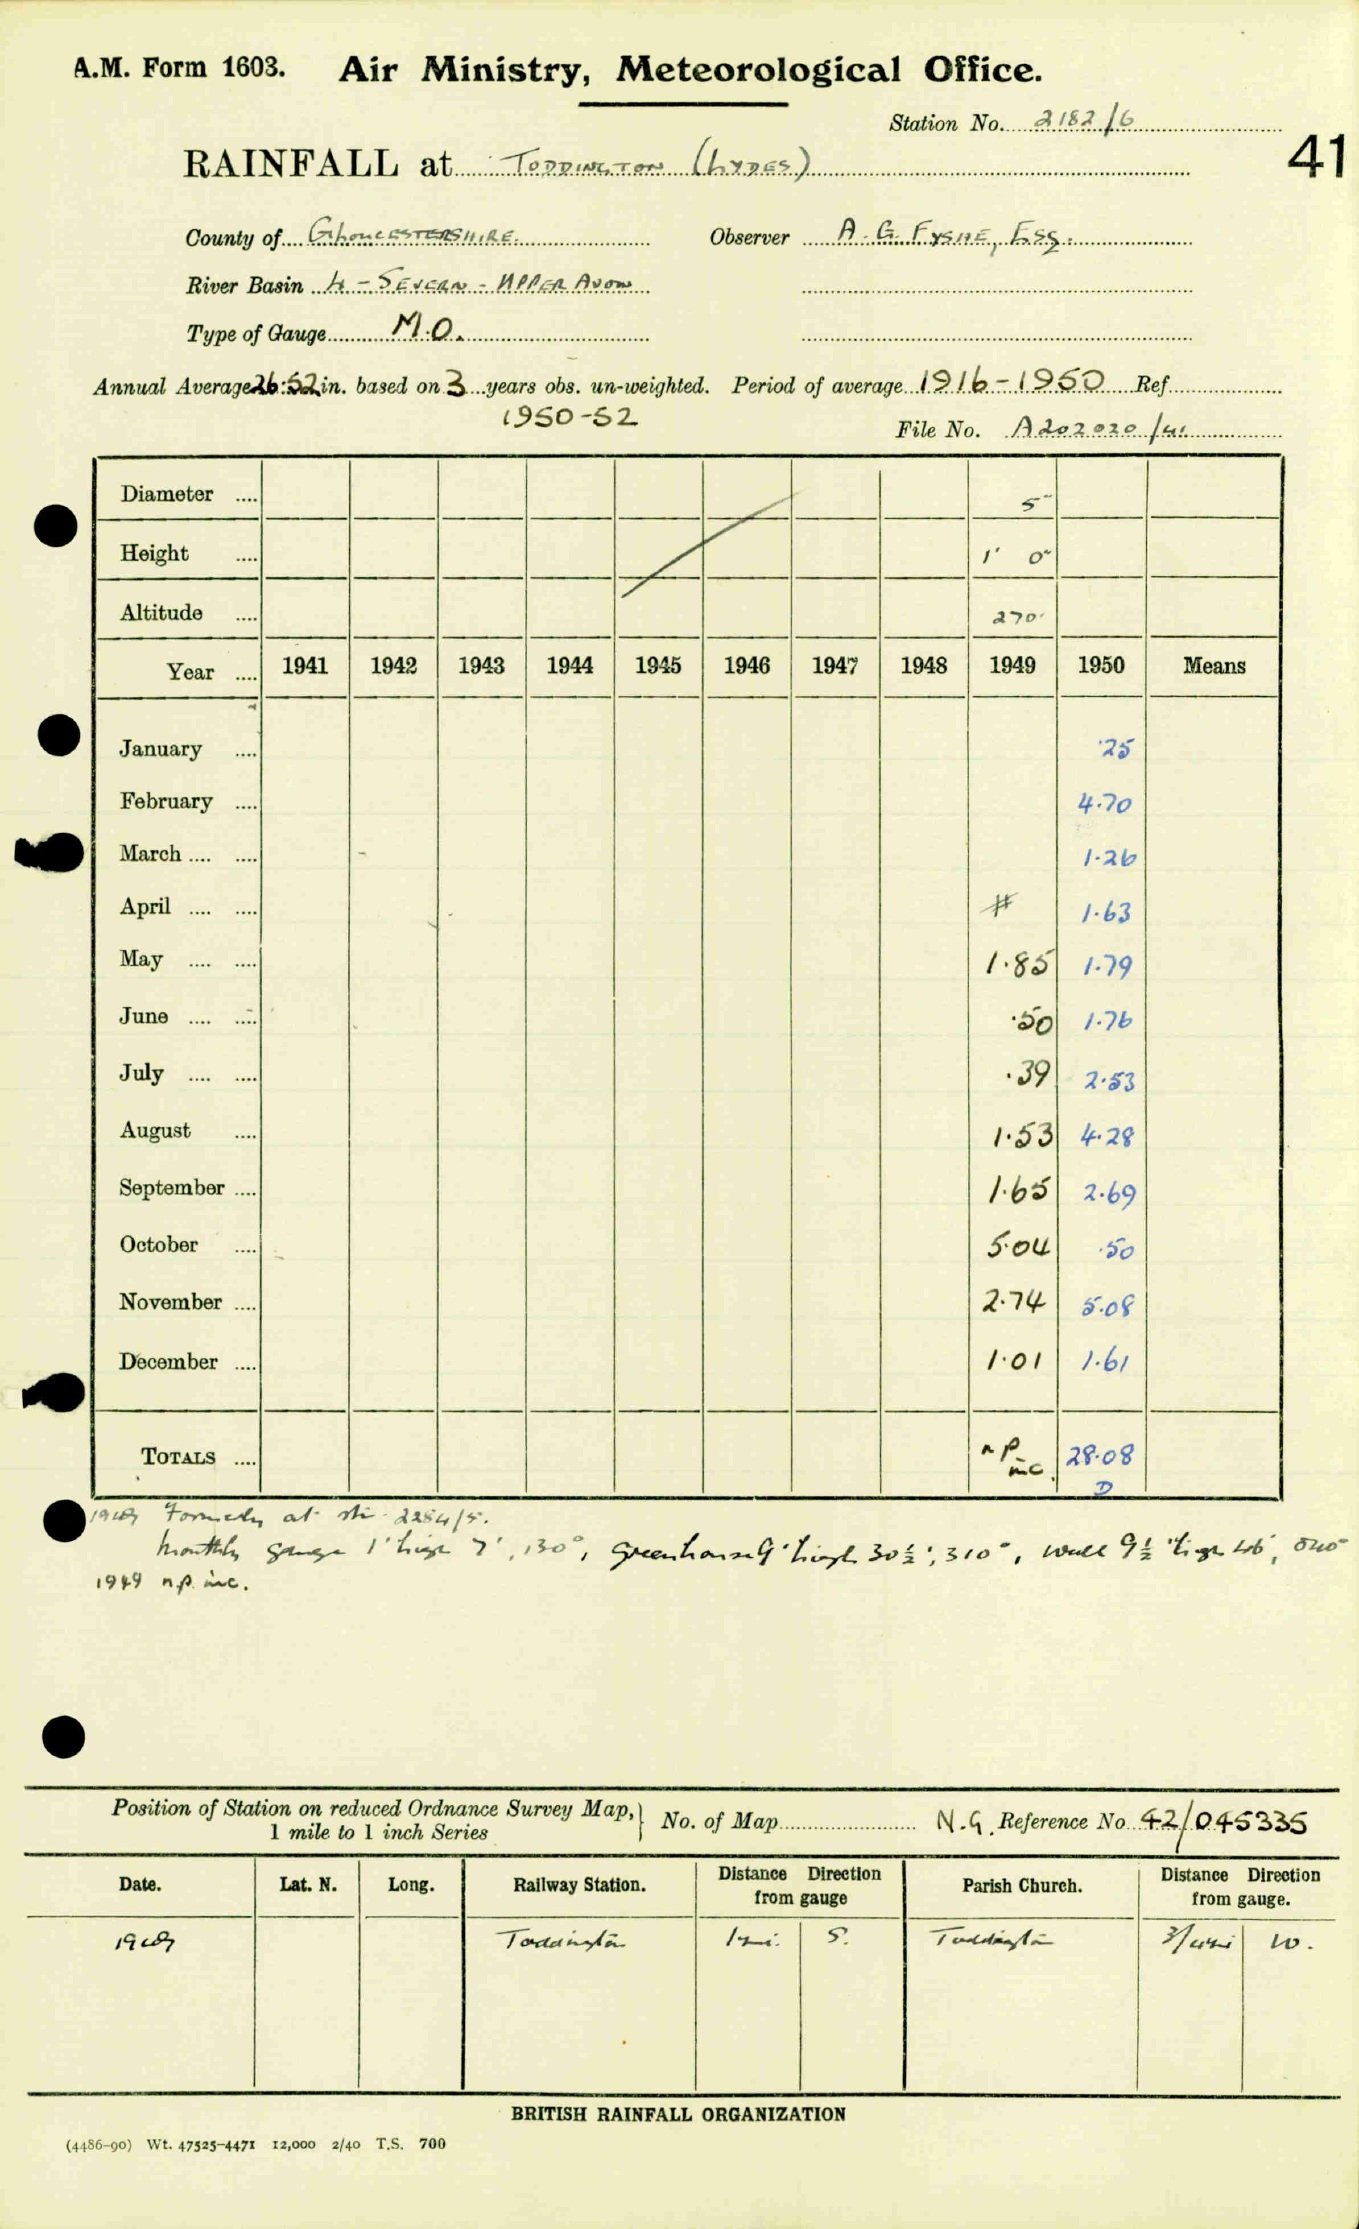 A.M. Form 1603. Air Ministry, Meteorological Office.
Station No. 2182/6
RAINFALL at TODDINGTON (LYDES)
41
County of GLOUCESTERSHIRE Observer A. G. FYSHE, ESQ.
River Basin 4 - SEVERN - UPPER AVON
Type of Gauge M.O.
Annual Average 26.52 in. based on 3 years obs. un-weighted. Period of average 1916-1950 Ref
1950-52
File No. A202020/41
Diameter .... 5"
Height .... 1' 0"
Altitude .... 270'
Year .... 1941 1942 1943 1944 1945 1946 1947 1948 1949 1950 Means
January .... .25
February .... 4.70
March .... .... 1.26
April .... .... # 1.63
May .... .... 1.85 1.79
June .... .... .50 1.76
July .... .... .39 2.53
August .... 1.53 4.28
September .... 1.65 2.69
October .... 5.04 .50
November .... 2.74 5.08
December .... 1.01 1.61
TOTALS .... n.p. inc. 28.08
D
1949 Formerly at stn. 2284/5.
Monthly gauge 1' high 7', 130°, greenhouse 9' high 30½', 310°, wall 9½' high 46', 040°
1949 n.p. inc.
Position of Station on reduced Ordnance Survey Map, } No. of Map N.G. Reference No 42/045335
1 mile to 1 inch Series
Date. Lat. N. Long. Railway Station. Distance Direction from gauge Parish Church. Distance Direction from gauge.
1949 Toddington 1 mi. S. Toddington 3/4 mi W.
BRITISH RAINFALL ORGANIZATION
(4486-90) Wt. 47525-4471 12,000 2/40 T.S. 700